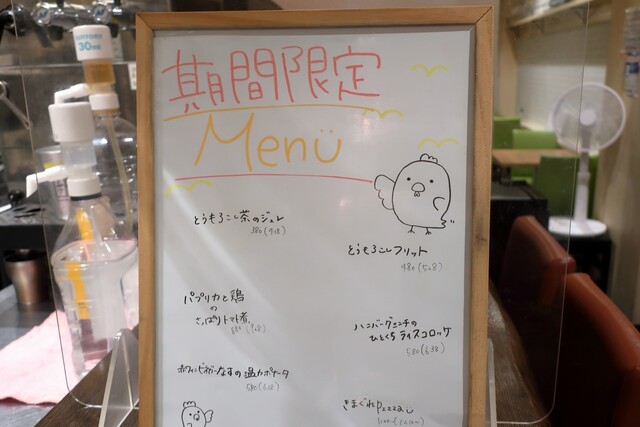 30ml
期間限定
Menü
とうもろこし茶のジュレ
380(418)
とうもろこしフリット
480(528)
パプリカと鶏
の
さっぱりトマト煮
ハンバーグミンチの
ひとくちライスコロッケ
580(638)
なすの温カポナータ
580
きまぐれpizza